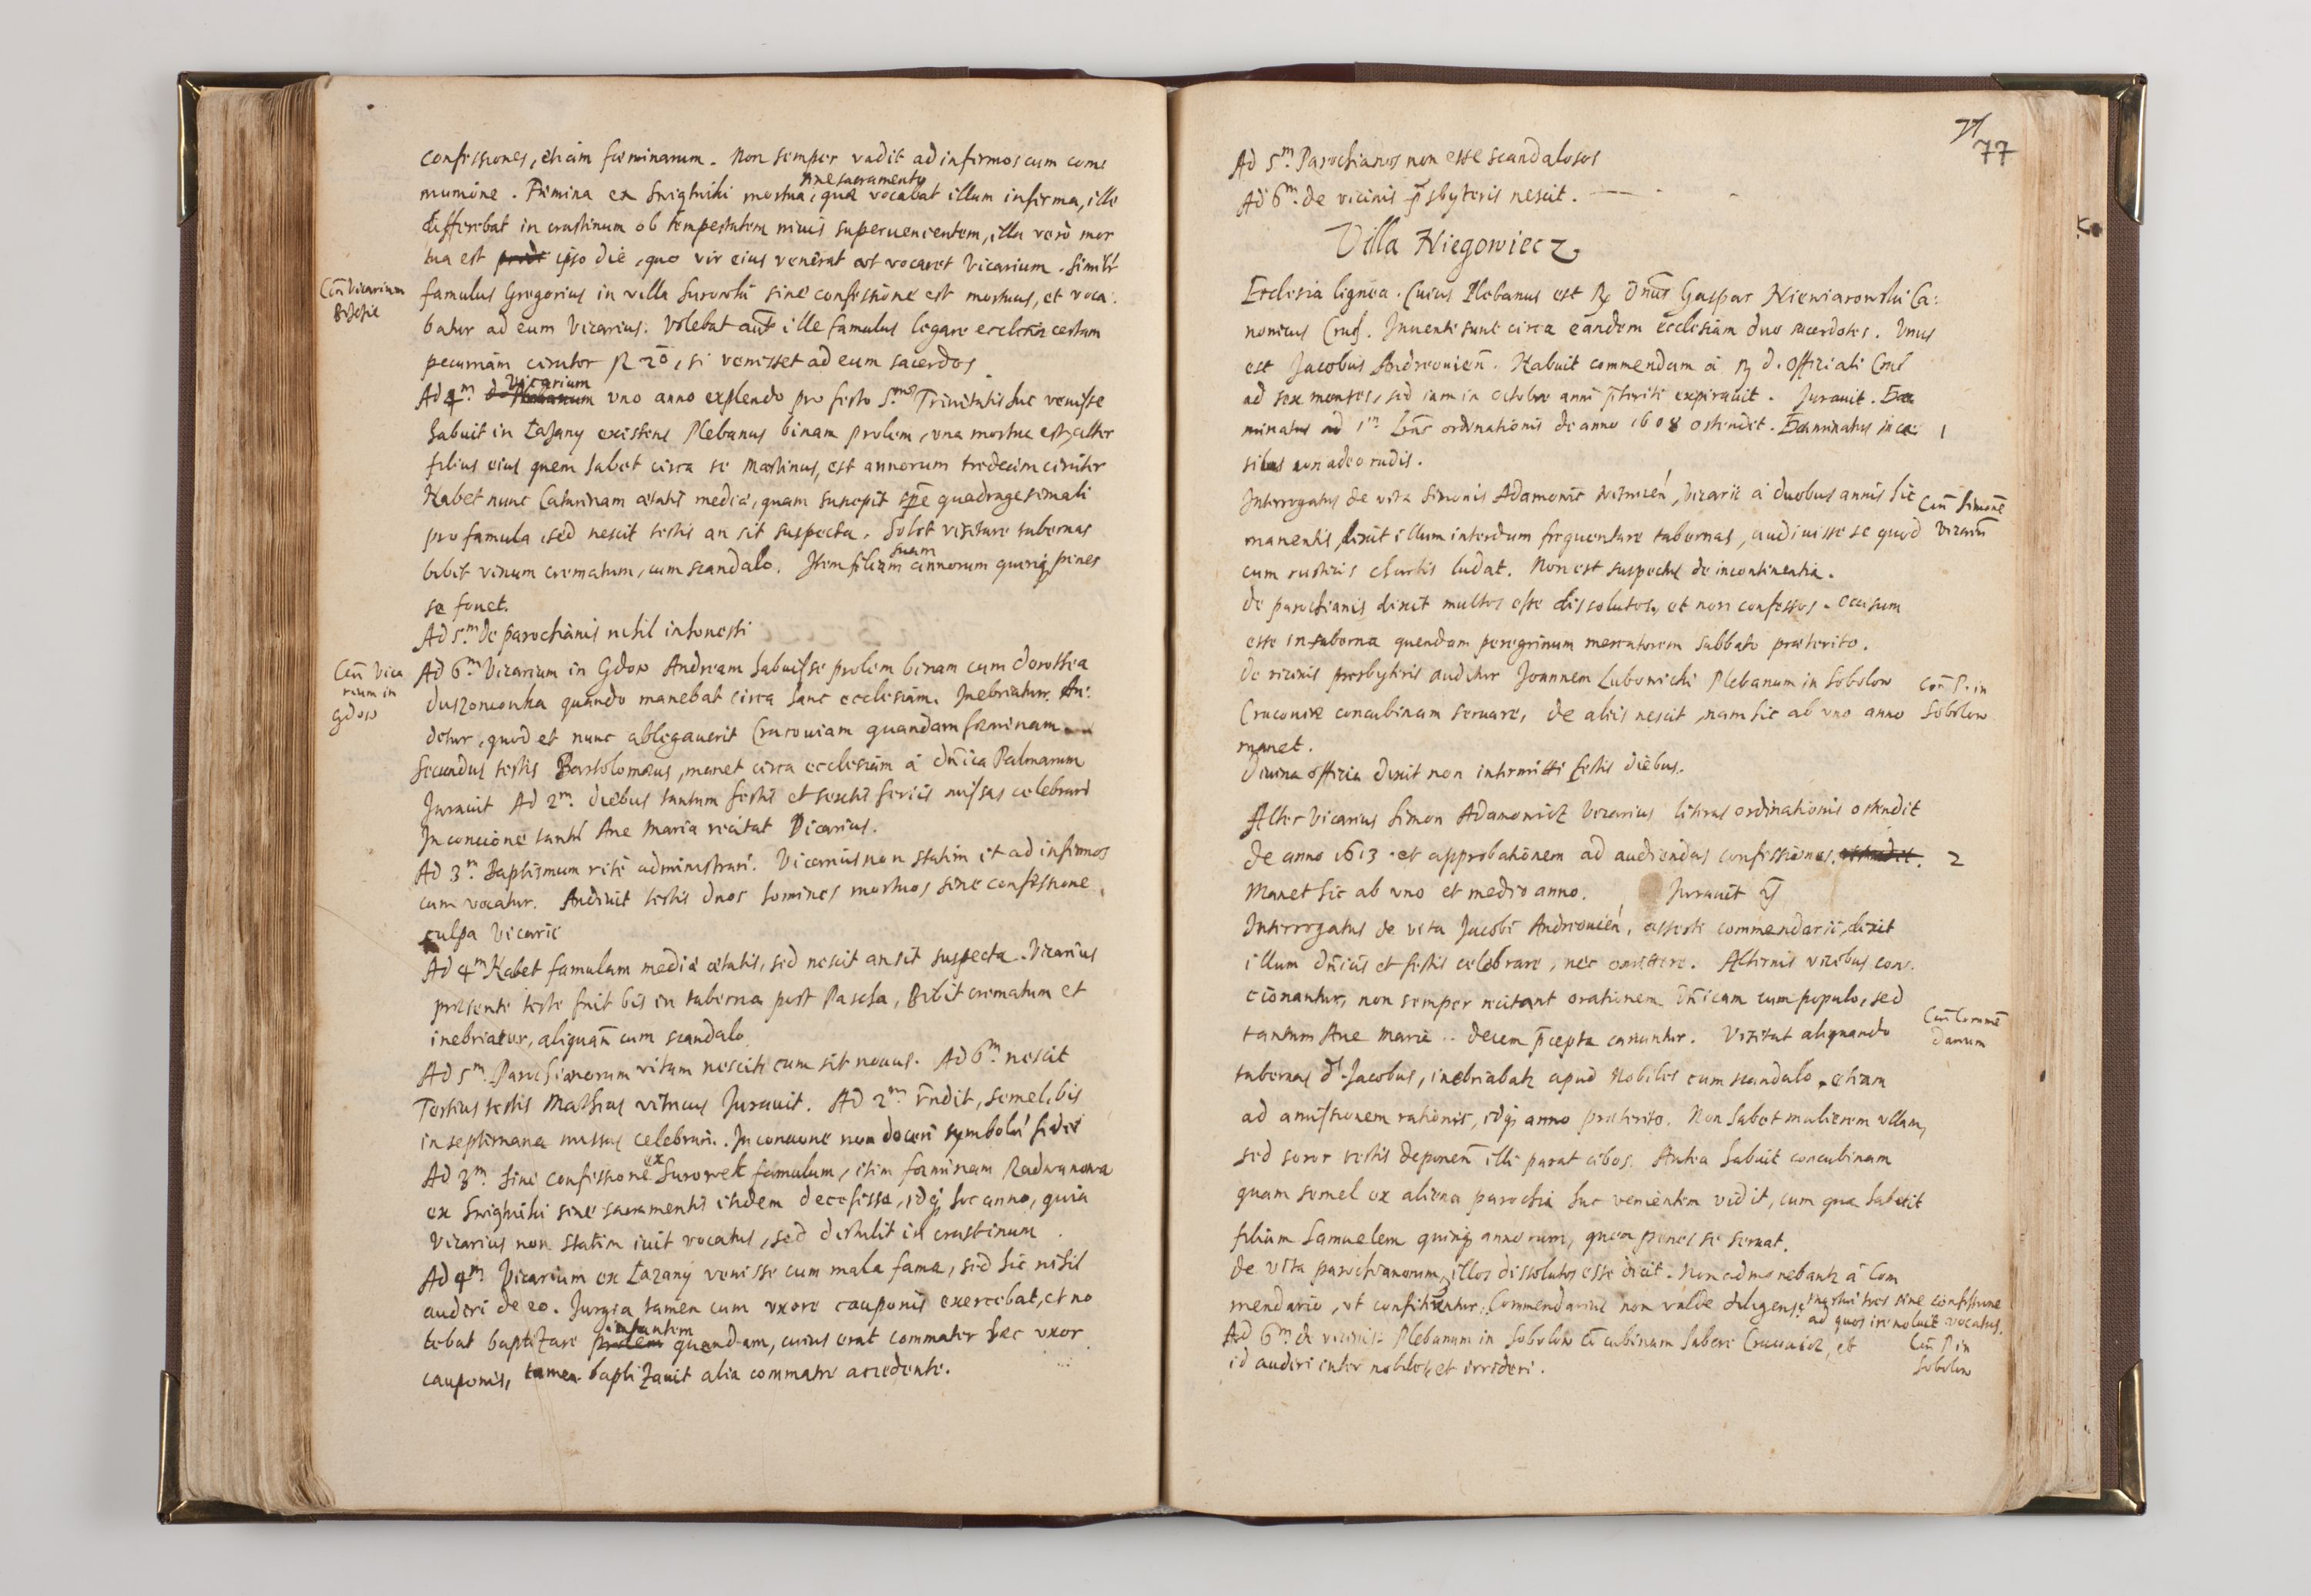 confessiones, etiam fœminarum. Non semper vadit ad infirmos cum com
munione. Fæmina ex Snigniki mortua sine sacramento, quæ vocabat illum infirma, ille
differebat in crastinum ob tempestatem niuis superuenientem, illa verò mor
tua est ipso die, quo vir eius venerat vt vocaret Vicarium. Similr
Cõn Vicarium
famulus Gregorius in villa Surowki sine confessione est mortuus, et voca
batur ad eum Vicarius. Volebat aut ille famulus legare ecclesiæ certam
pecuniam circiter fl 20, si venisset ad eum sacerdos
Ad 4m Vicarium vno anno explendo pro festo S.mæ Trinitatis huc venisse
habuit in Łazany existens Plebanus binam prolem, vna mortua est, alter
filius eius quem habet circa se Martinus, est annorum tredecim circiter
Habet nunc Catarinam ætatis mediæ, quam suscepit tpre quadragesimali
pro famula, sed nescit testis an sit suspecta. Solet visitare tabernas
bibit vinum crematum, cum scandalo. Item filiam suam annorum quinq penes
se fouet.
Ad 5m De parochianis nihil inhonesti
Cõn Vica
rium in
Gdow
Ad 6m Vicarium in Gdow Andream habuisse prolem binam cum Dorothea
Duszoncowka quando manebat circa hanc ecclesiam. Inebriatur. Au
ditur, quod et nunc ablegauerit Cracouiam quandam fœminam
Secundus testis Bartolomæus, manet circa ecclesiam à dñica Palmarum
Jurauit Ad 2m. diebus tantum festis et sextis feriis missas celebrari
In concione tantũ Aue Maria recitat Vicarius.
Ad 3m Baptismum ritè administrari. Vicarius non statim it ad infirmos
cum vocatur. Audiuit testis duos homines mortuos sine confessione
culpa Vicarii
Ad 4m Habet famulam mediæ ætatis, sed nescit an sit suspecta. Vicarius
præsente teste fuit bis in taberna post Pascha, Bibit crematum et
inebriatur, aliquañ cum scandalo
Ad 5m. Parochianorum vitam nescit cum sit nouus. Ad 6m nescit
Tertius testis Mathias vitricus Jurauit. Ad 2m rndit, semel, bis
in septimana missas celebrari. In concione non doceri symbolũ fidei
Ad 3m sine confessione ex Surowek famulum, item fœminam Radwanowa
ex Snigniki sine sacramentis itidem decessisse, idq hoc anno, quia
Vicarius non statim iuit vocatus, sed distulit in crastinum
Ad 4m Vicarium ex Łazany venisse cum mala fama, sed hic nihil
audiri de eo. Jurgia tamen cum vxore cauponis exercebat, et no
lebat baptizare infantem quendam, cuius erat commater hæc vxor
cauponis, tamen baptizauit alia commatre accedente.
77
Ad 5m. Parochianos non esse scandalosos
Ad 6m. de vicinis p̃sbyteris nescit.
Villa Niegowiecz
Ecclesia lignea. Cuius Plebanus est R Dnus Gaspar Niewiarowski Ca
nonicus Crac. Inuenti sunt circa eandem ecclesiam duo sacerdotes. Vnus
est Jacobus Andreouien. Habuit commendam à R d. Officiali
ad sex menses, sed iam in Octobre anni p̃teriti expirauit. Jurauit. Exa
minatus ad 1m lras ordinationis de anno 1608 ostendit. Examinatus in ca 1
sibus non adeo rudis.
Interrogatus de vita Simonis Adamowic Vicarii à duobus annis hic
Cõn Simonẽ
Vicariũ
manentis, dixit illum interdum frequentare tabernas, audiuisse se quod
cum rusticis chartis ludat. Non est suspectus de incontinentia.
De parochianis dixit multos esse dissolutos, et non confessos. Occisum
esse in taberna quendam peregrinum mercatorem sabbato præterito.
De vicinis presbyteris auditur Joannem Lubowicki Plebanum in Sobolow
Cõn P. in
Sobolow
Cracouiæ concubinam seruare, de aliis nescit, nam hic ab vno anno
manet.
Diuina officia dixit non intermitti festis diebus.
Alter Vicarius Simon Adamowicz Vicarius literas ordinationis ostendit
de anno 1613 et approbationem ad audiendas confessiones. 2
Manet hic ab vno et medio anno. Jurauit
Interrogatus de vita Jacobi Andreouien, asserti commendarii, dixit
illum dñicis et festis celebrare, nec omittere. Alternis vicibus con
cionantur, non semper recitant orationem Dñicam cum populo, sed
tantum Aue Maria. decem p̃cepta canuntur. Visitat aliquando
Cõn Commẽ
darium
tabernas ds Jacobus, inebriabatr apud nobiles cum scandalo, etiam
ad amissionem rationis, idq anno præterito. Non habet mulierem vllam,
sed soror testis deponeñ illi parat cibos. Antea habuit concubinam
quam semel ex aliena parochia huc venientem vidit, cum qua habuit
filium Samuelem quinq annorum, quem penes se seruat.
De vita parochianorum, illos dissolutos esse dicit. Non admonebantr à Com
mendario, vt confiterentur. Commendarius non valde diligens: mortui tres sine confessione
ad quos ire noluit vocatus.
Ad 6m de vicinis: Plebanum in Sobolow cõcubinam habere Cracouiæ, et
Cõn P in
Sobolow
id audiri inter nobiles, et irrideri.